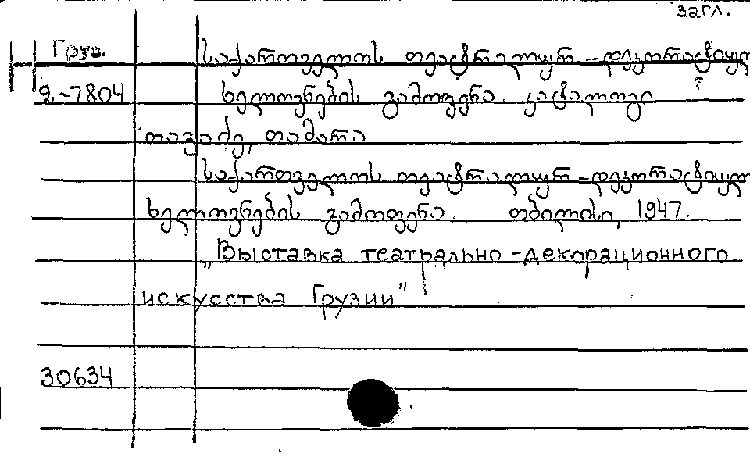 загл.
Груз. საქართველოს თეატრალურ-დეკორატიულ
2.-7804 ხელოვნების გამოფენა. კატალოგი
თავაძე, თამარა
საქართველოს თეატრალურ-დეკორატიულ
ხელოვნების გამოფენა. თბილისი, 1947.
„Выставка театрально-декорационного
искусства Грузии"
30634